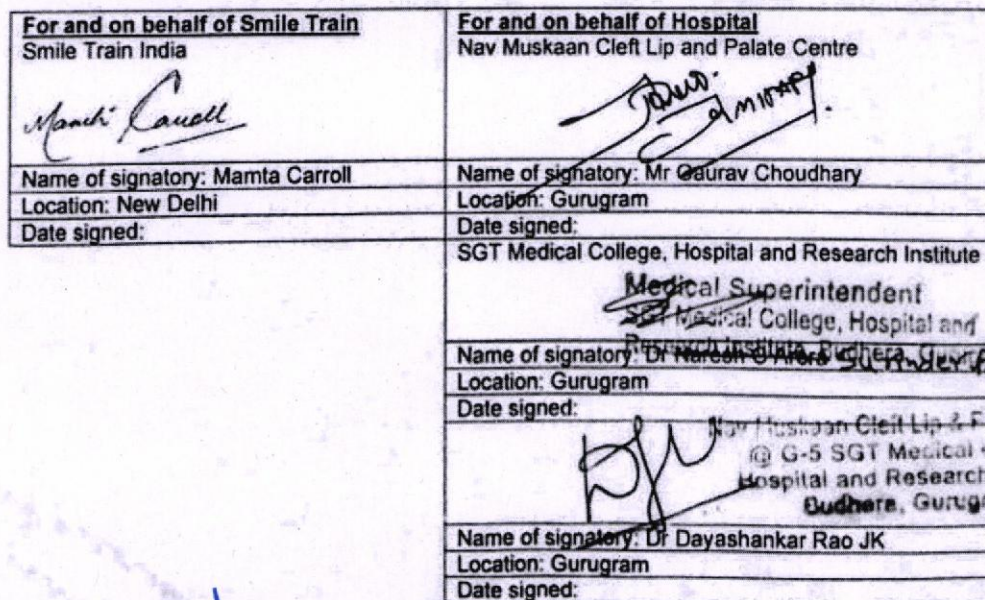 For and on behalf of Smile Train
Smile Train India
Name of signatory: Mamta Carroll
Location: New Delhi
Date signed:
For and on behalf of Hospital
Nav Muskaan Cleft Lip and Palate Centre
Name of signatory: Mr Gaurav Choudhary
Location: Gurugram
Date signed:
SGT Medical College, Hospital and Research Institute
Medical Superintendent
SGT Medical College, Hospital and
Research Institute, Budhera,
Name of signatory: Dr Naresh
Location: Gurugram
Date signed:
Nav Muskaan Cleft Lip &
@ G-5 SGT Medical
Hospital and Research
Budhera,
Name of signatory: Dr Dayashankar Rao JK
Location: Gurugram
Date signed: